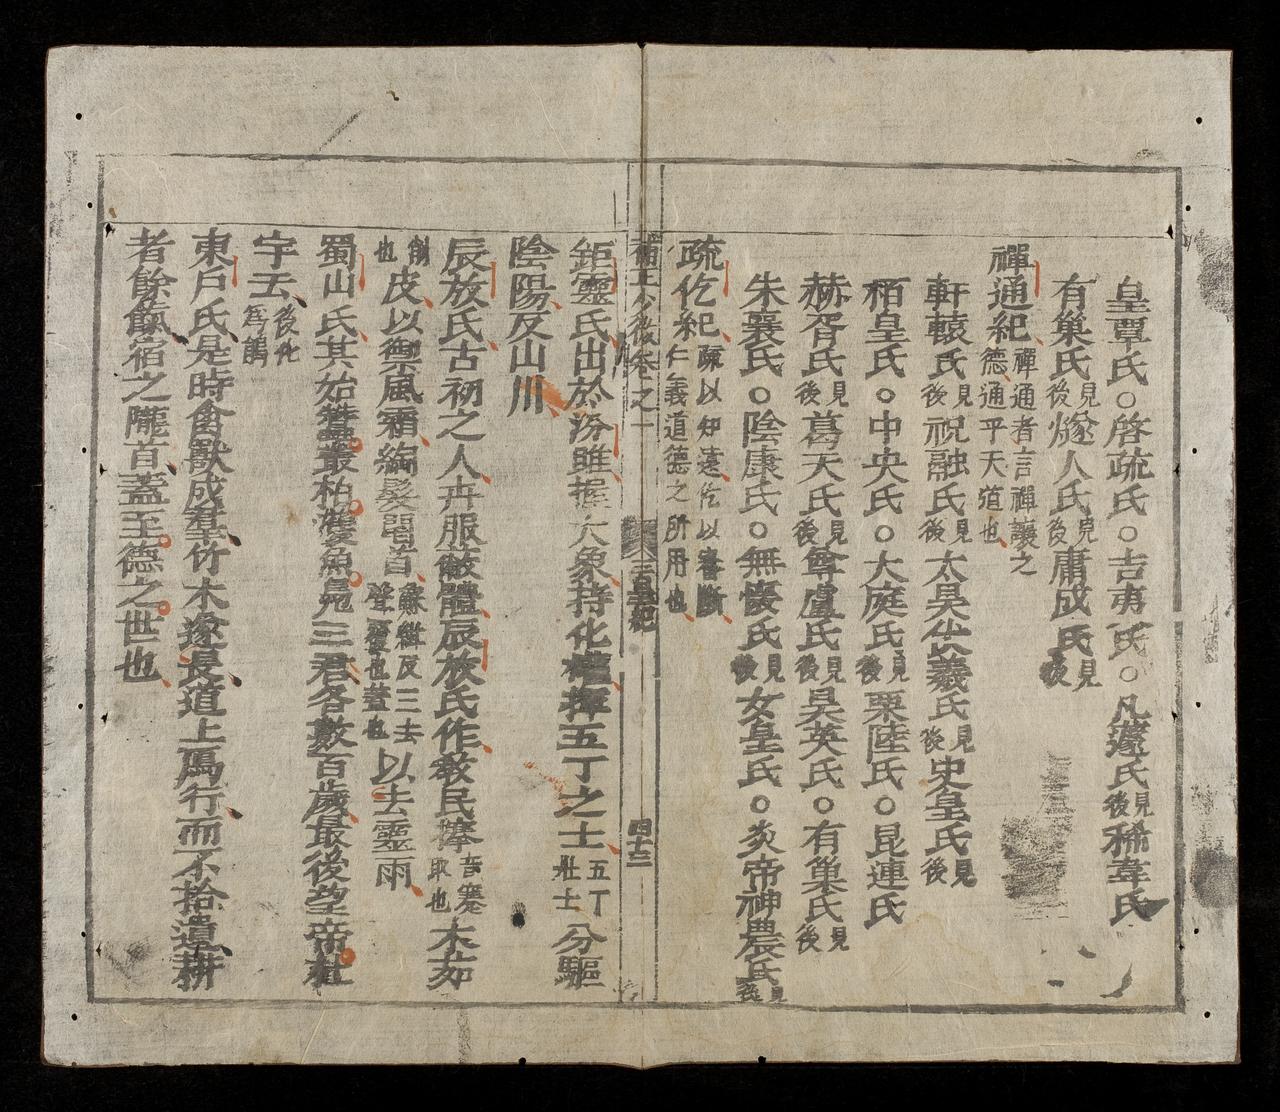 皇覃氏○啓疏氏○吉夷氏○凡蘧氏見後狶韋氏
有巢氏見後燧人氏見後庸成氏見後
禪通紀禪通者言禪讓之德通乎天道也
軒轅氏見後祝融氏見後太昊伏羲氏見後史皇氏見後
栢皇氏○中央氏○大庭氏見後栗陸氏○昆連氏
赫胥氏見後葛天氏見後尊盧氏見後昊英氏○有巢氏見後
朱襄氏○陰康氏○無懷氏見後女皇氏○炎帝神農氏見後
疏仡紀疏以知遠仡以審斷仁義道德之所用也
卷之一 三皇紀 四十三
鉅靈氏出於汾脽握大象持化權揮五丁之士五丁壯士分驅
陰陽反山川
辰放氏古初之人卉服蔽體辰放氏作敎民㩃音蹇取也木茹
皮以禦風霜綯髮冒首以去靈雨
蜀山氏其始蠶叢柏濩魚鳧三君各數百歲最後望帝杜
宇云後化爲鵑
東戶氏是時禽獸成羣竹木遂長道上鴈行而不拾遺耕
者餘餼宿之隴首蓋至德之世也